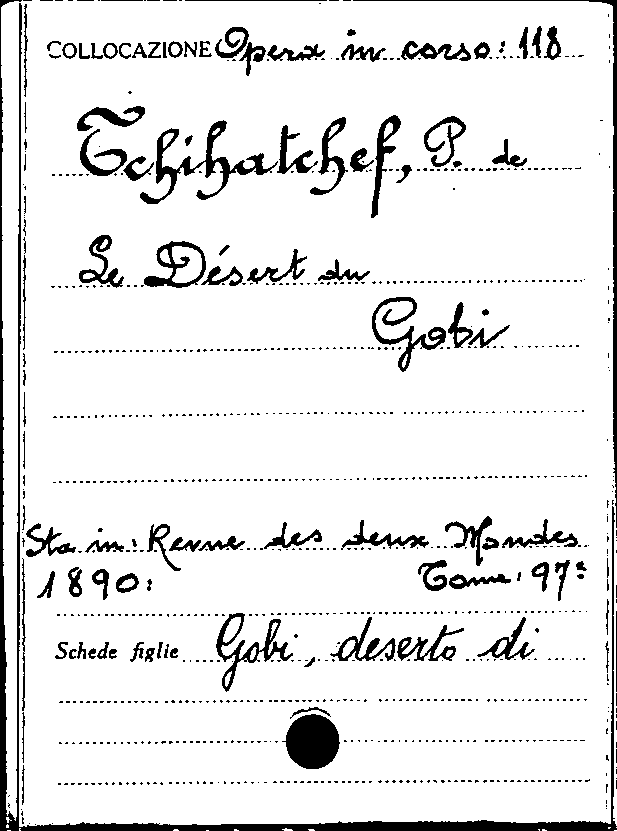 COLLOCAZIONE Opera in corso: 118
Tchihatchef, P. de
Le Désert du
Gobi
Sta in: Revue des deux Mondes
1890: Tome: 97º
Schede figlie Gobi, deserto di